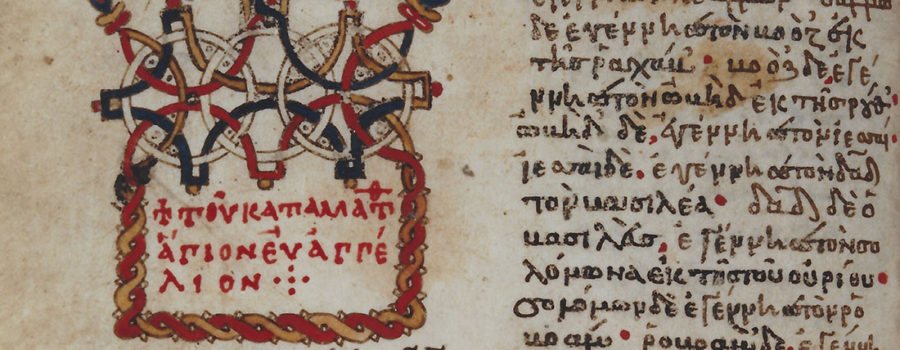 ✢ τοῦ κατα ματθ
ἅγιον ἐυάγγέ
λιον
δὲ ἐγέννησε τὸν βοὸζ ἐκ
τῆς ῥαχάβ · βοὸζ δὲ ἐγέ
ννησε τὸν ὠβὴδ ἐκ τῆς ῥούθ ·
ὠβὴδ δὲ, ἐγέννησε τὸν ἰεσσαί ·
ἰεσσαὶ δὲ, ἐγέννησε τὸν δαδ
τὸν βασιλέα · δαδ δὲ ὁ
βασιλεὺς, ἐγέννησε τὸν σο
λόμωνα ἐκ τῆς τοῦ οὐρίου ·
σολόμων δὲ ἐγέννησε τὸν ῥο
βοάμ · ῥοβοὰμ δὲ, ἐγέννη